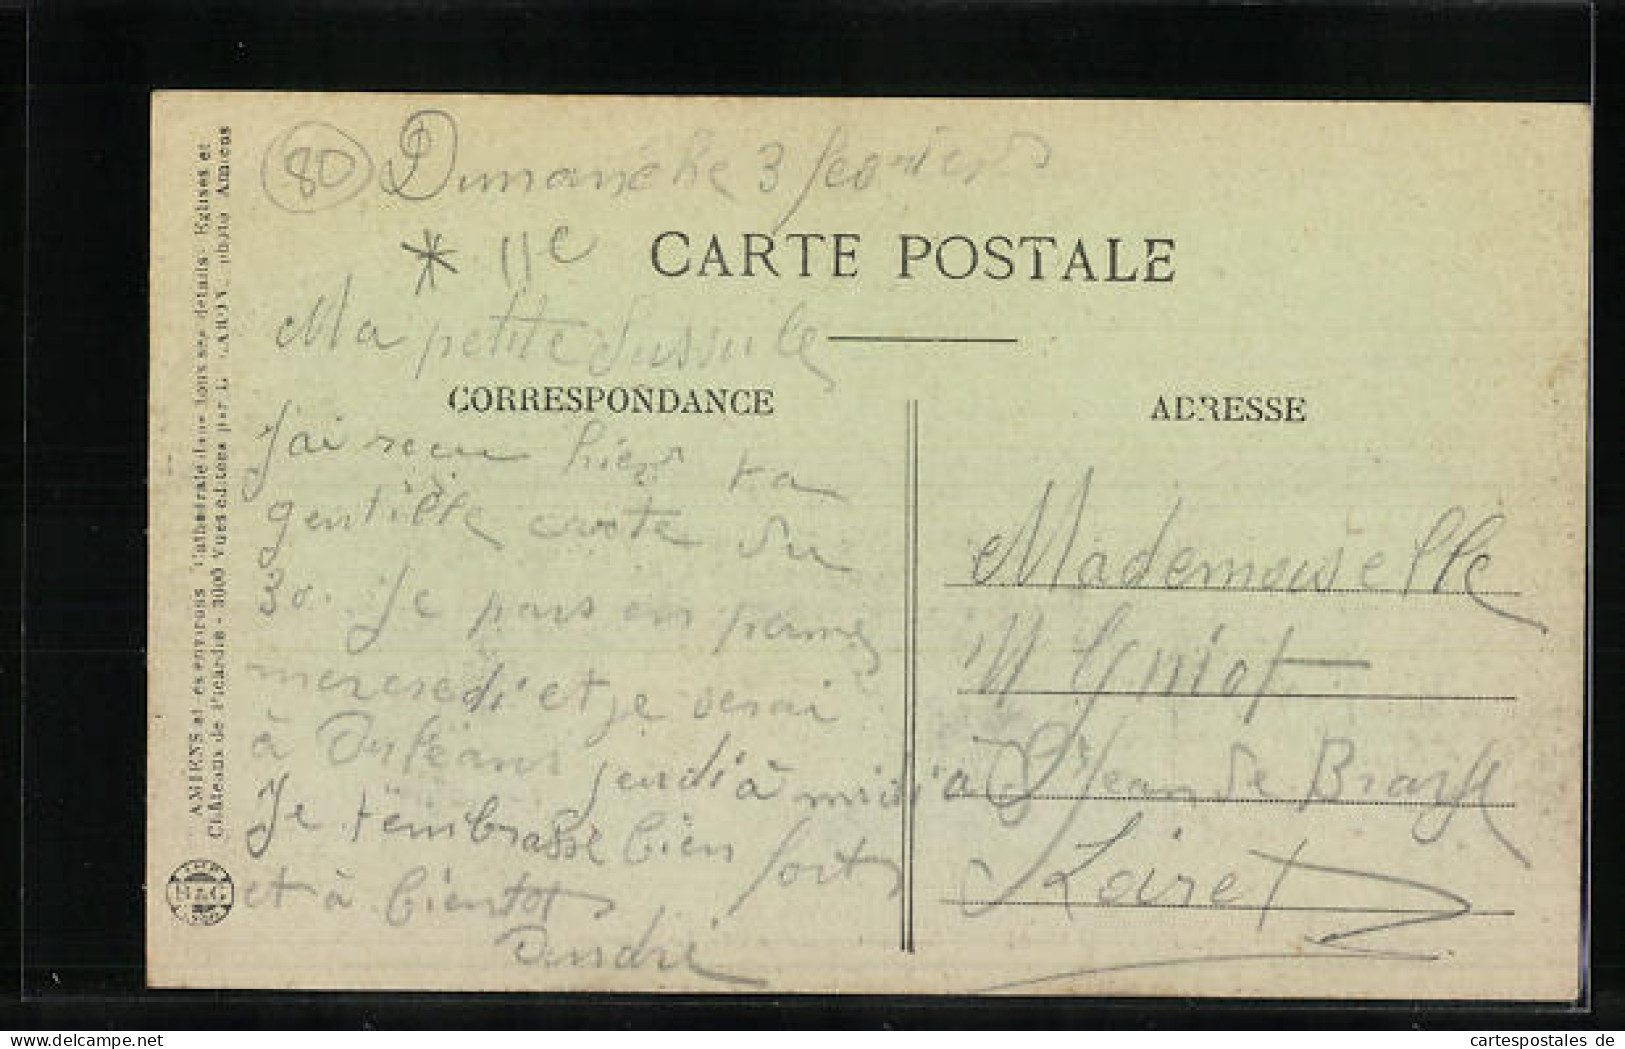 AMIENS et ses environs Cathédrale dans tous ses détails - Eglises et
Châteaux de Picardie - 3000 Vues éditées par L. CARON, photo Amiens
80 Dimanche 3 fevrier
* 11e
CARTE POSTALE
Ma petite
CORRESPONDANCE
J'ai recu hier ta
gentille carte du
30. Je pars en perme
mercredi et je serai
à Orléans jeudi à midi
Je t'embrasse bien fort
et à bientot
André
ADRESSE
Mademoiselle
M Guiot
à St Jean de Braye
Loiret
B & G
cartespostales de
www.cartespostales-delcampe.com